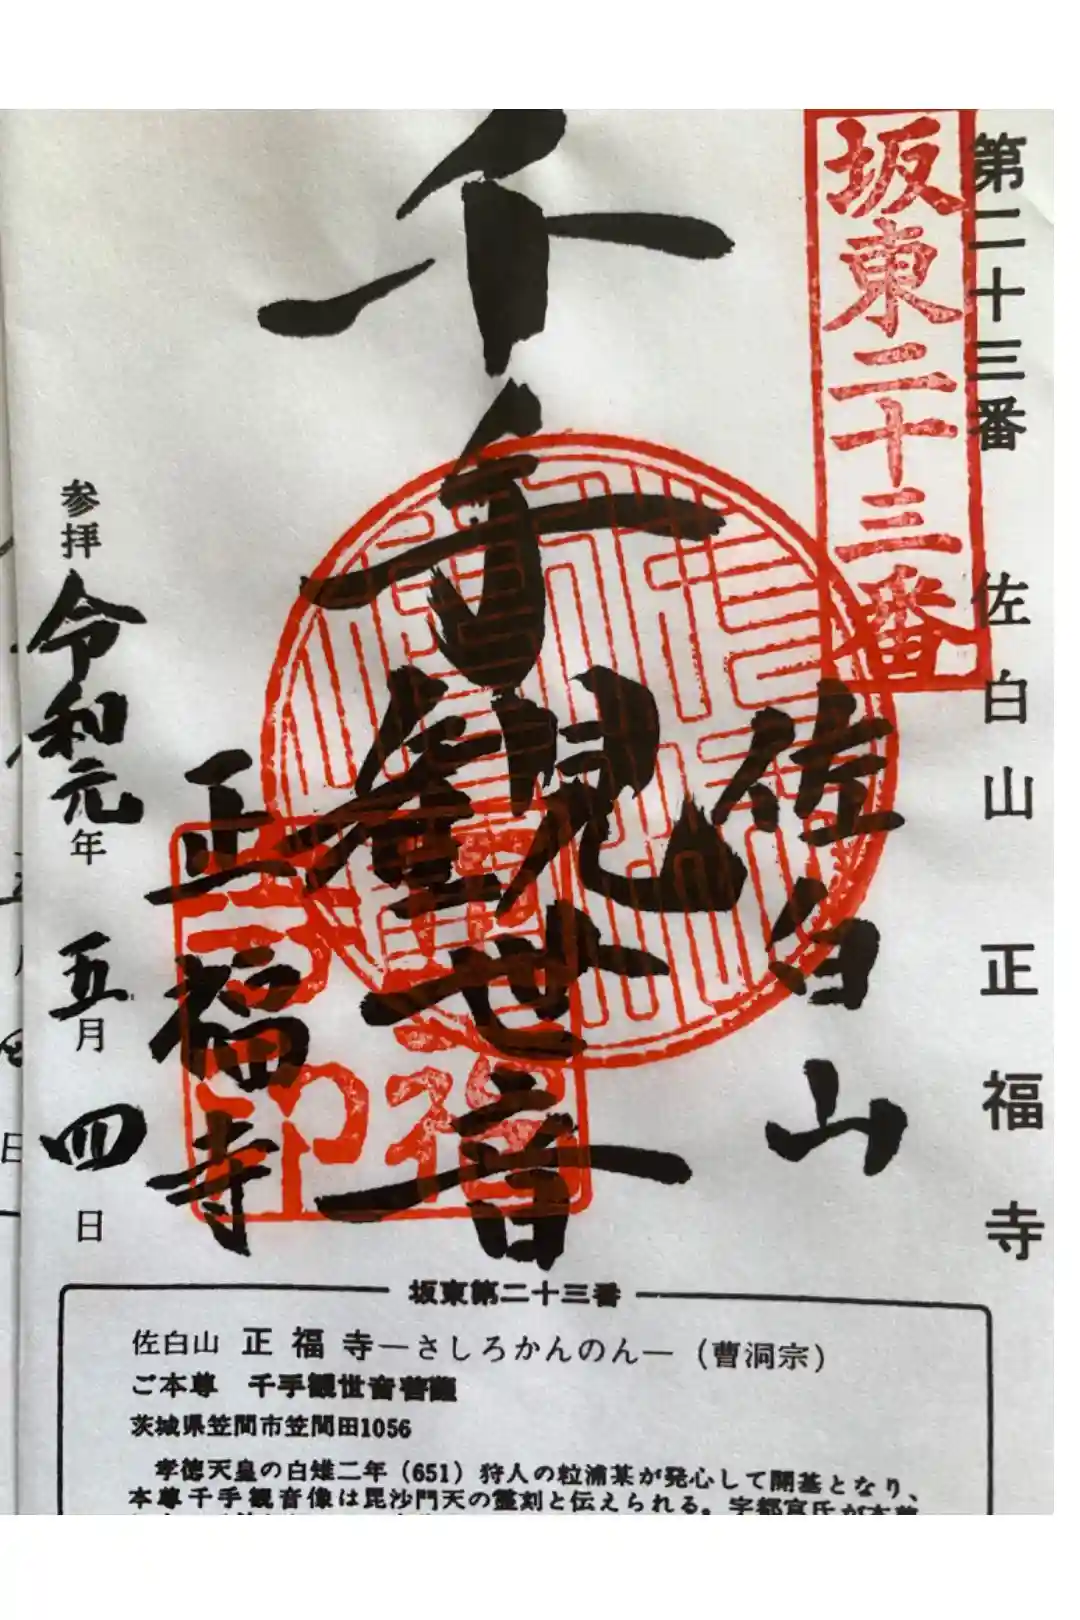 第二十三番　佐白山　正福寺
坂東二十三番
佐白山
千手観世音
正福寺
参拝 令和元年 五月 四日
坂東第二十三番
佐白山 正福寺―さしろかんのん―（曹洞宗）
ご本尊　千手観世音菩薩
茨城県笠間市笠間田1056
孝徳天皇の白雉二年（651）狩人の粒浦某が発心して開基となり、
本尊千手観音像は毘沙門天の霊刻と伝えられる。宇都宮氏が本尊